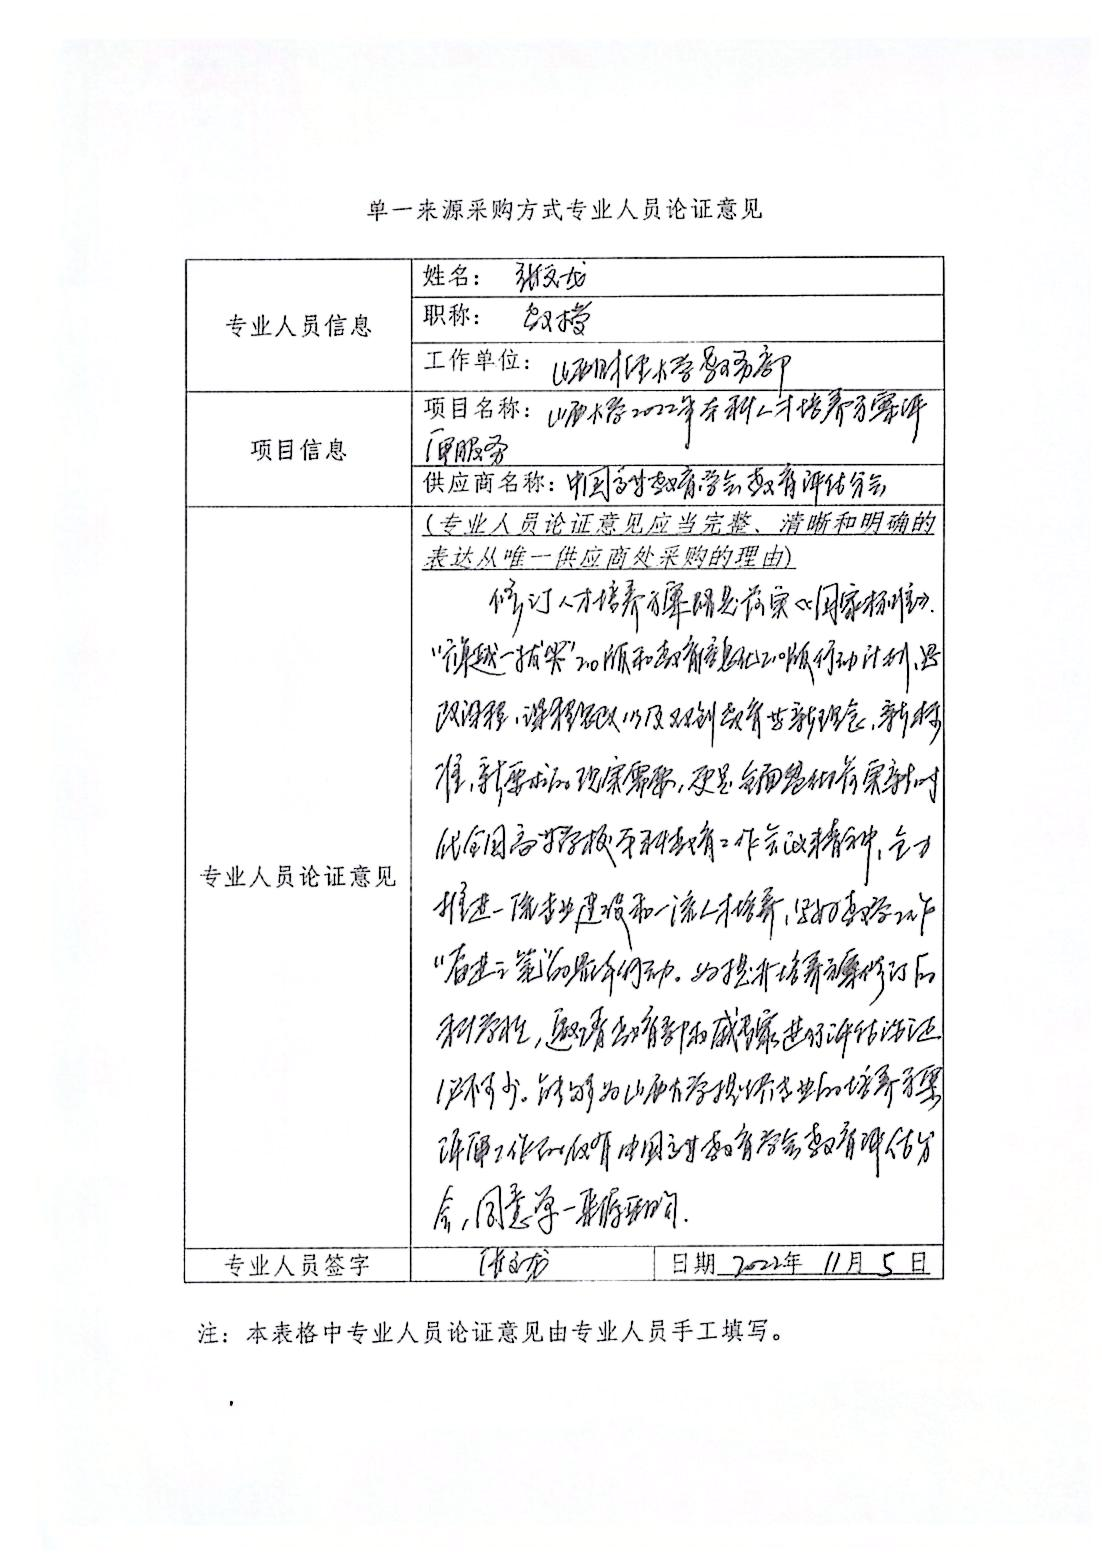 单一来源采购方式专业人员论证意见
专业人员信息
姓名： 张文龙
职称： 教授
工作单位： 山西财经大学教务部
项目信息
项目名称： 山西大学2022年本科人才培养方案评
审服务
供应商名称： 中国高等教育学会教育评估分会
专业人员论证意见
(专业人员论证意见应当完整、清晰和明确的
表达从唯一供应商处采购的理由)
修订人才培养方案既是落实《国家标准》、
"卓越一拔尖"2.0版和教育信息化2.0版行动计划、思
政课程、课程思政以及双创教育等新理念、新标
准、新要求的现实需要，更是全面贯彻落实新时
代全国高等学校本科教育工作会议精神，全力
推进一流专业建设和一流人才培养，写好教学工作
"奋进之笔"的具体行动。为提升培养方案修订的
科学性，邀请教育部权威专家进行评估论证
必不可少。能够为山西大学提供专业的培养方案
评审工作的仅有中国高等教育学会教育评估分
会，同意单一来源采购。
专业人员签字
张文龙
日期 2022年 11月 5 日
注：本表格中专业人员论证意见由专业人员手工填写。